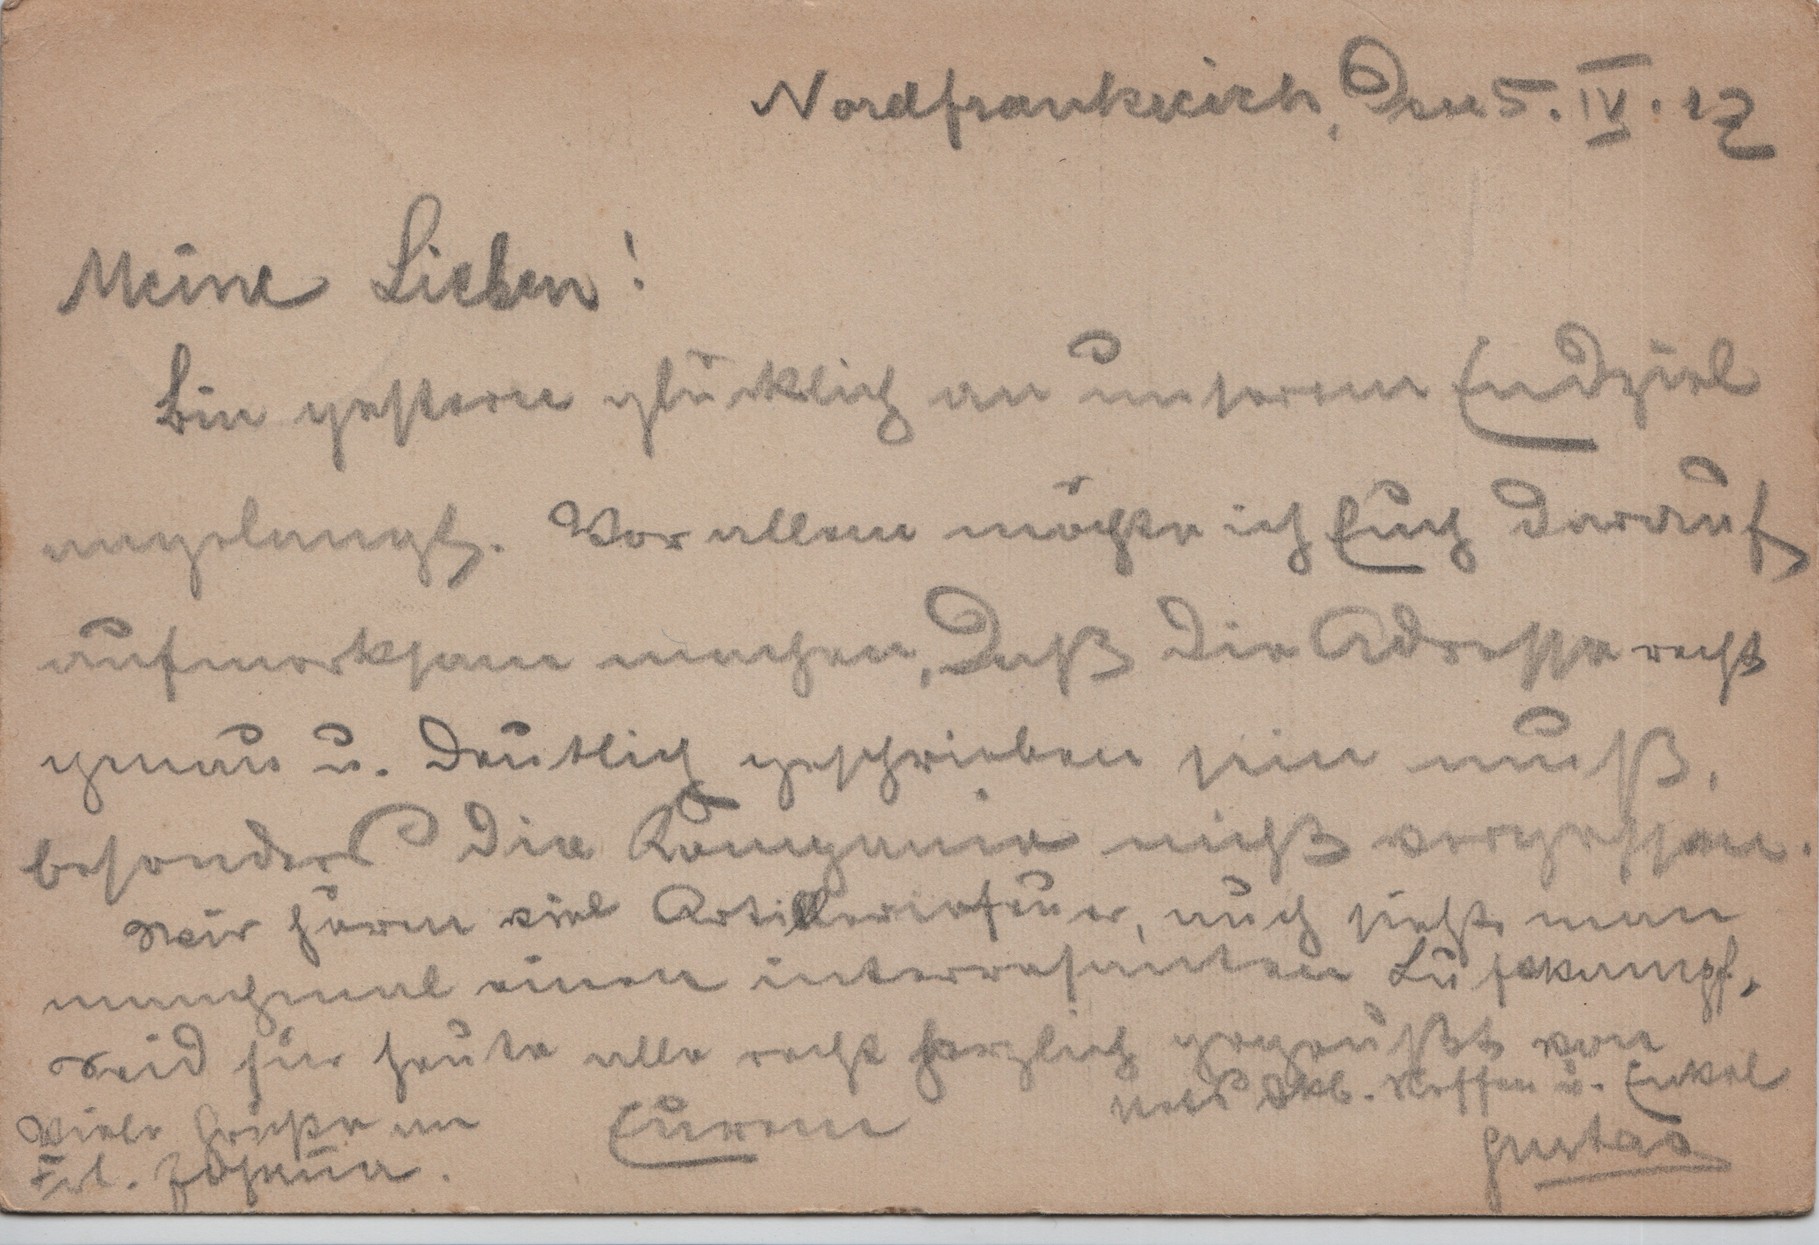 Nordfrankreich, den 5. IV. 17
Meine Lieben!
Bin gestern glücklich an unserem Endziel
angelangt. Vor allem möchte ich Euch darauf
aufmerksam machen, daß die Adresse recht
genau u. deutlich geschrieben sein muß,
besonders die Kompanie nicht vergessen.
Wir hören viel Artilleriefeuer, auch sieht man
manchmal einen interresanten Luftkampf,
Seid für heute alle recht herzlich gegrüßt von
Eurem stets dkb. Neffen u. Enkel
Gustav
Viele Grüße an
Frl.